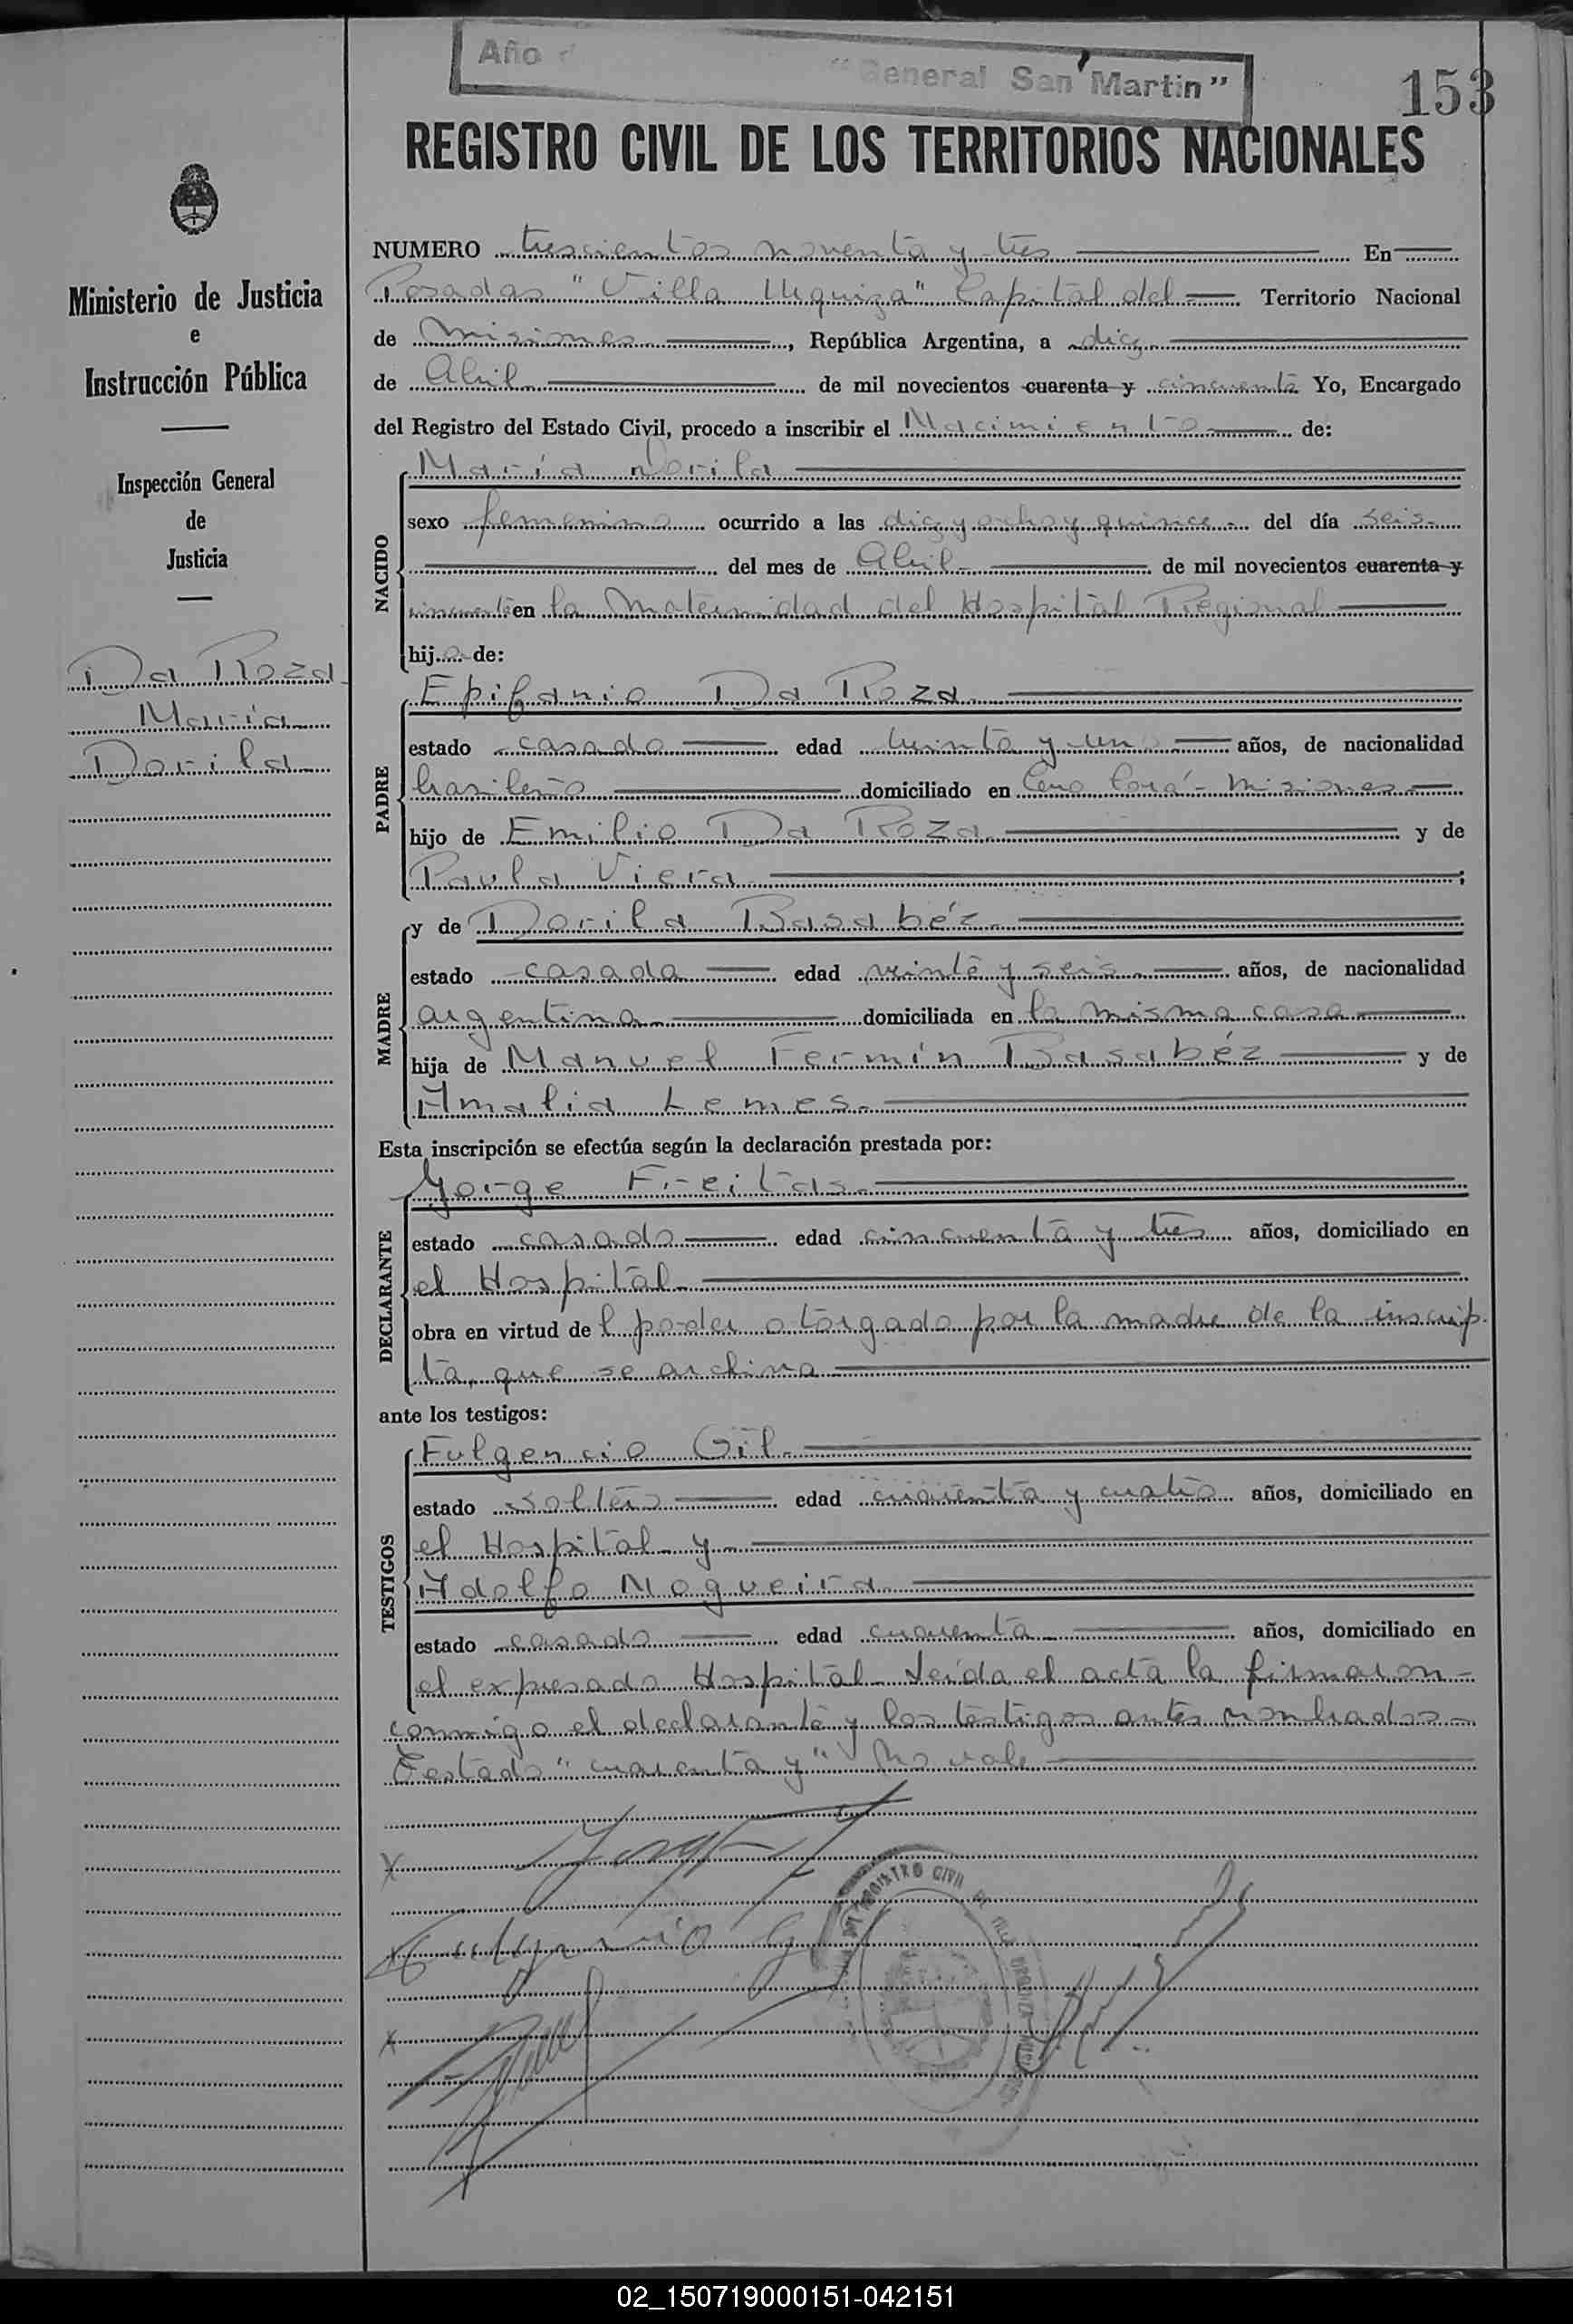 Año
"General San Martin"
153
REGISTRO CIVIL DE LOS TERRITORIOS NACIONALES
Ministerio de Justicia
e
Instrucción Pública
Inspección General
de
Justicia
Da Roza
María
Dorila
NUMERO trescientos noventa y tres En
Posadas "Villa Urquiza" Capital del Territorio Nacional
de Misiones, República Argentina, a diez
de Abril de mil novecientos cuarenta y cincuenta Yo, Encargado
del Registro del Estado Civil, procedo a inscribir el Nacimiento de:
NACIDO
María Dorila
sexo femenino ocurrido a las diez y ocho y quince del día seis
del mes de Abril de mil novecientos cuarenta y
cincuenta en la Maternidad del Hospital Regional
hija de:
PADRE
Epifanio Da Roza
estado casado edad treinta y uno años, de nacionalidad
brasileño domiciliado en Cerro Corá - Misiones
hijo de Emilio Da Roza y de
Paula Viera;
MADRE
y de Dorila Basabéz
estado casada edad veinte y seis años, de nacionalidad
argentina domiciliada en la misma casa
hija de Manuel Fermín Basabéz y de
Amalia Lemes.
Esta inscripción se efectúa según la declaración prestada por:
DECLARANTE
Jorge Freitas
estado casado edad cincuenta y tres años, domiciliado en
el Hospital
obra en virtud del poder otorgado por la madre de la inscrip-
ta, que se archiva
ante los testigos:
TESTIGOS
Fulgencio Gil
estado soltero edad cuarenta y cuatro años, domiciliado en
el Hospital y
Adolfo Nogueira
estado casado edad cuarenta años, domiciliado en
el expresado Hospital. Leída el acta la firmaron
conmigo el declarante y los testigos antes nombrados
Testado "cuarenta y" No vale
Fulgencio G
REGISTRO CIVIL
02_150719000151-042151